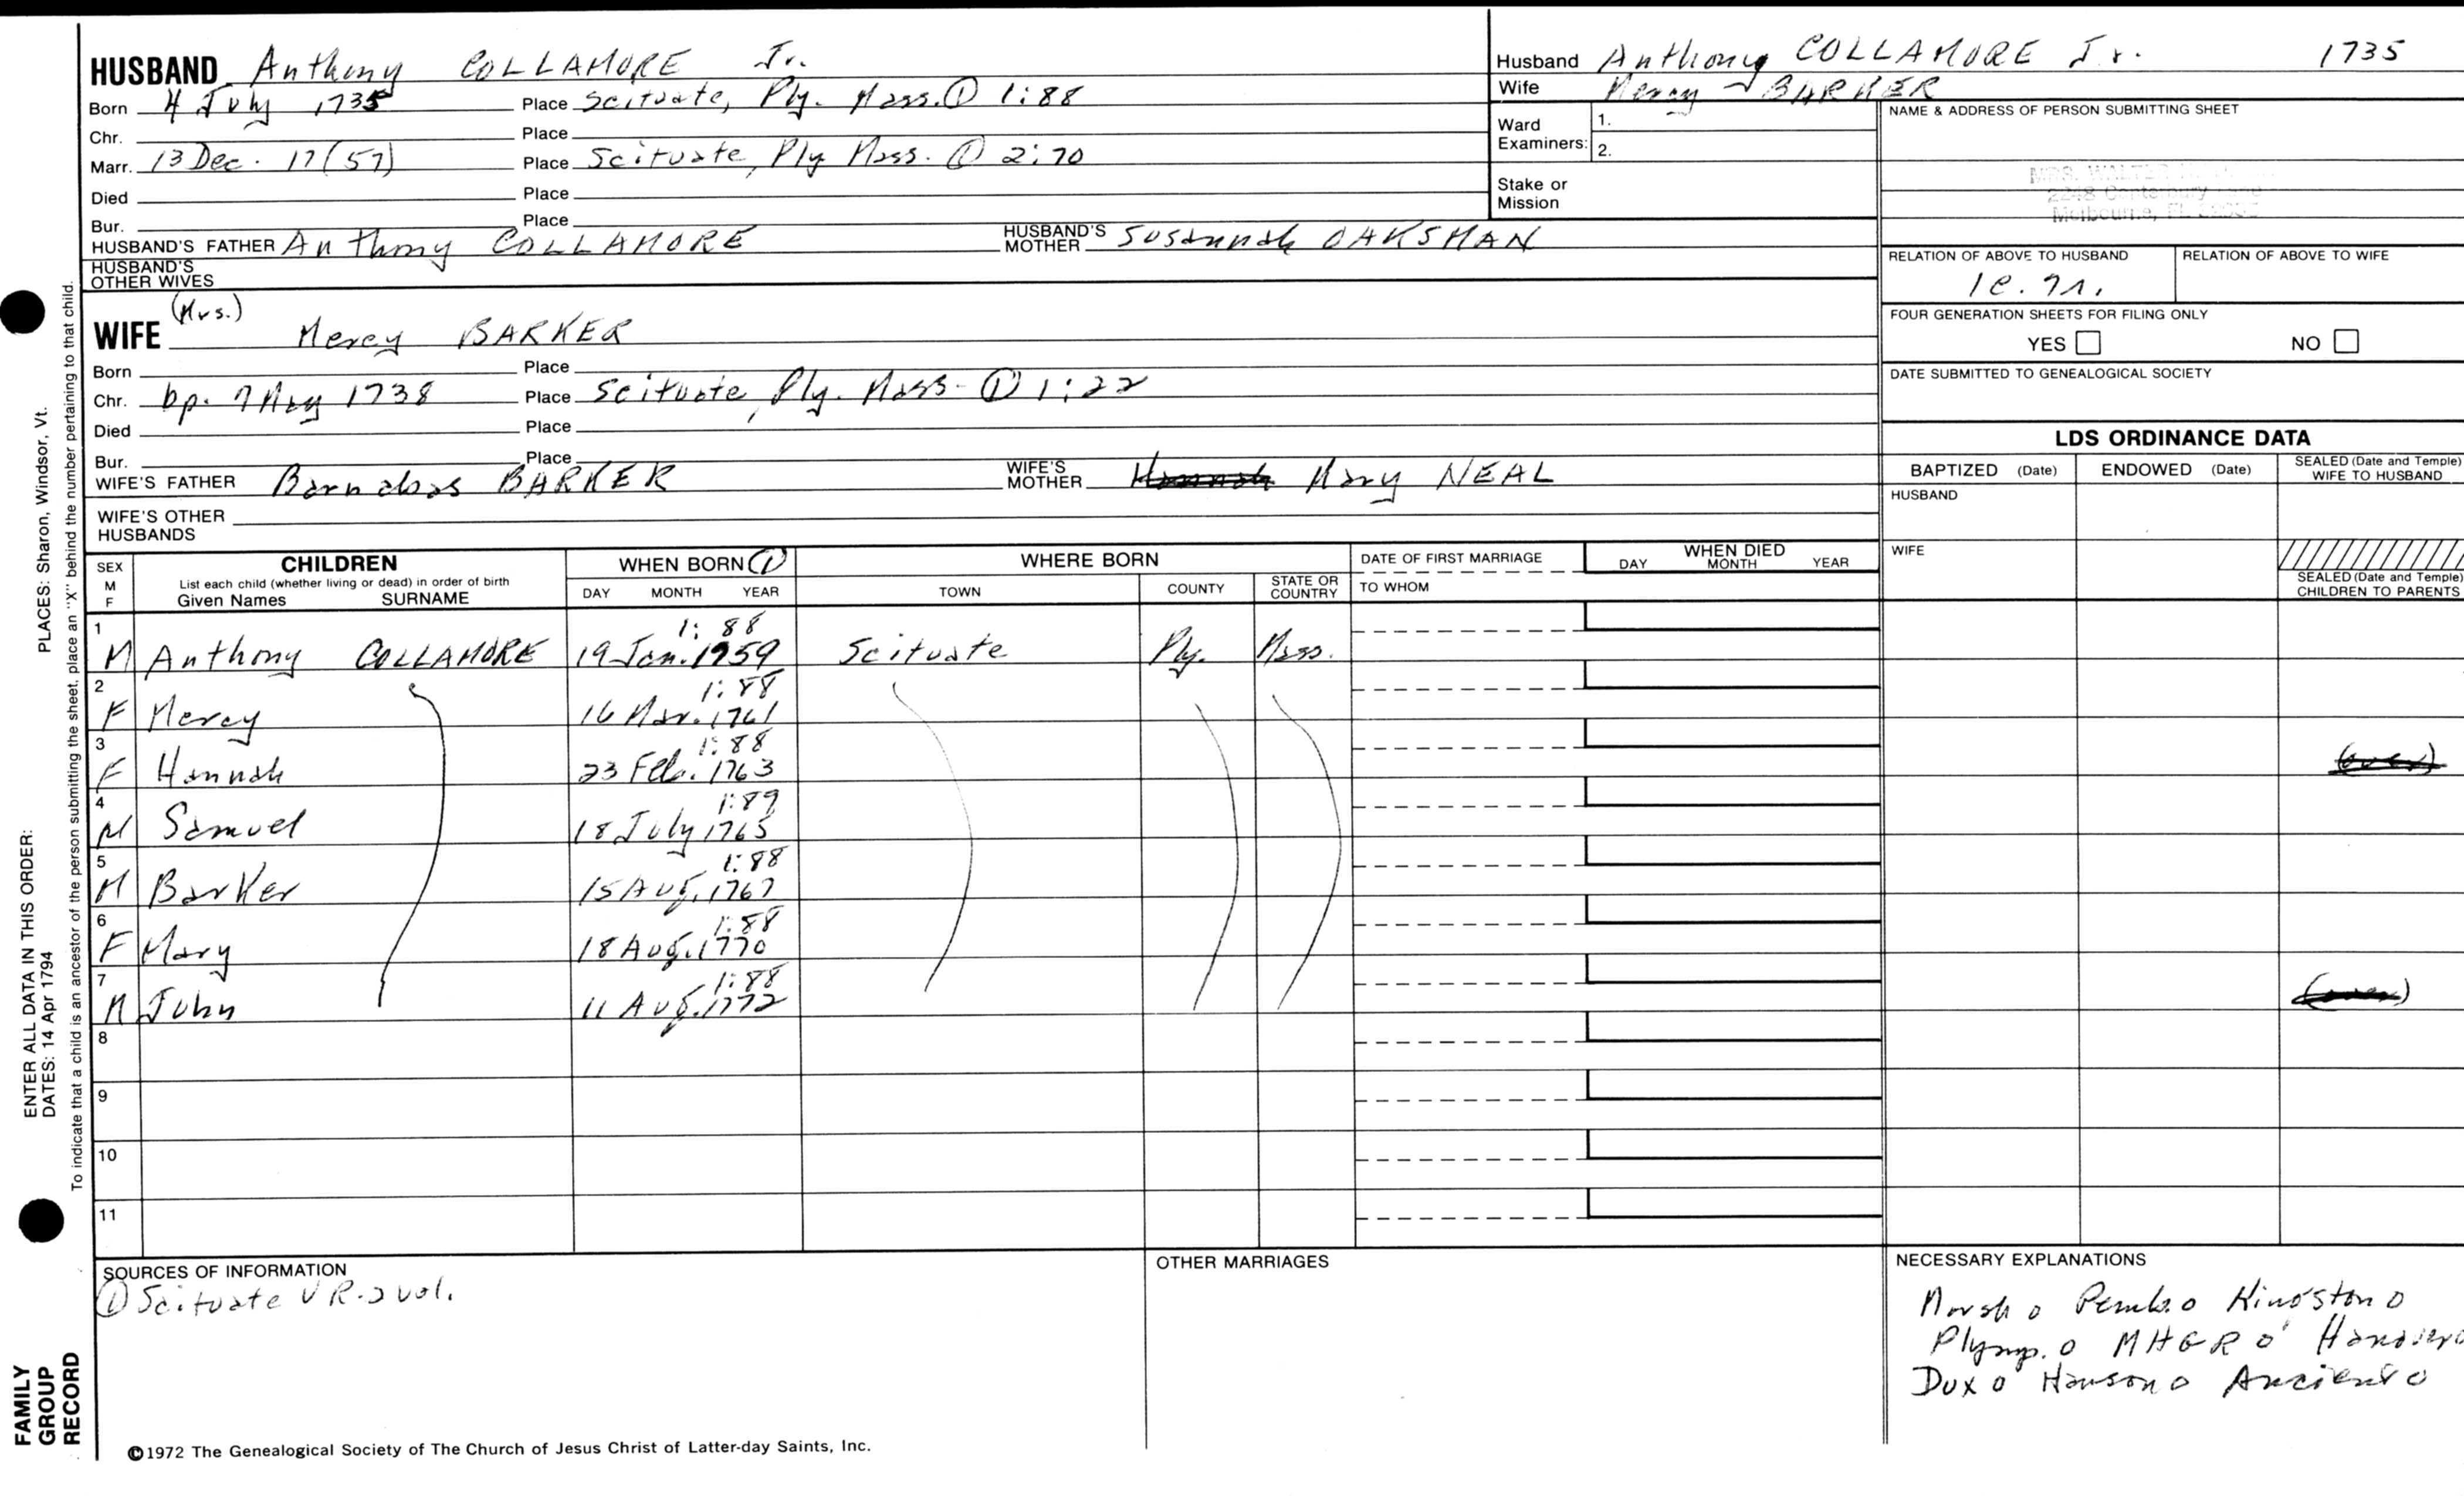 HUSBAND Anthony COLLAMORE Jr.
Born 4 July 1735 Place Scituate, Ply. Mass. ① 1:88
Chr. Place
Marr. 13 Dec. 17(57) Place Scituate, Ply Mass. ① 2:70
Died Place
Bur. Place
HUSBAND'S FATHER Anthony COLLAMORE HUSBAND'S MOTHER Susannah OAKSMAN
HUSBAND'S OTHER WIVES
(Mrs.)
WIFE Mercy BARKER
Born Place
Chr. bp. 7 May 1738 Place Scituate, Ply. Mass- ① 1:22
Died Place
Bur. Place
WIFE'S FATHER Barnabas BARKER WIFE'S MOTHER Hannah Mary NEAL
WIFE'S OTHER HUSBANDS
Husband Anthony COLLAMORE Jr. 1735
Wife Mercy BARKER
Ward Examiners: 1.
2.
Stake or Mission
NAME & ADDRESS OF PERSON SUBMITTING SHEET
MRS. WALTER
Melbourne, FL
RELATION OF ABOVE TO HUSBAND RELATION OF ABOVE TO WIFE
FOUR GENERATION SHEETS FOR FILING ONLY
YES NO
DATE SUBMITTED TO GENEALOGICAL SOCIETY
LDS ORDINANCE DATA
BAPTIZED (Date) ENDOWED (Date) SEALED (Date and Temple) WIFE TO HUSBAND
HUSBAND
WIFE
SEALED (Date and Temple) CHILDREN TO PARENTS
SEX M F CHILDREN List each child (whether living or dead) in order of birth Given Names SURNAME
WHEN BORN ① DAY MONTH YEAR
WHERE BORN TOWN COUNTY STATE OR COUNTRY
DATE OF FIRST MARRIAGE TO WHOM
WHEN DIED DAY MONTH YEAR
1 1:88
M Anthony COLLAMORE 19 Jan. 1759 Scituate Ply. Mass.
2 1:88
F Mercy 16 Mar. 1761
3 1:88
F Hannah 23 Feb. 1763 (over)
4 1:89
M Samuel 18 July 1765
5 1:88
M Barker 15 Aug. 1767
6 1:88
F Mary 18 Aug. 1770
7 1:88
M John 11 Aug. 1772 (over)
8
9
10
11
SOURCES OF INFORMATION
① Scituate VR-2 vol.
OTHER MARRIAGES
NECESSARY EXPLANATIONS
Marsh o Pemb. o Kingston o
Plymp. o MHGR o Hanover o
Dux o Hanson o Ancient o
©1972 The Genealogical Society of The Church of Jesus Christ of Latter-day Saints, Inc.
FAMILY GROUP RECORD
ENTER ALL DATA IN THIS ORDER:
DATES: 14 Apr 1794
PLACES: Sharon, Windsor, Vt.
To indicate that a child is an ancestor of the person submitting the sheet, place an "X" behind the number pertaining to that child.